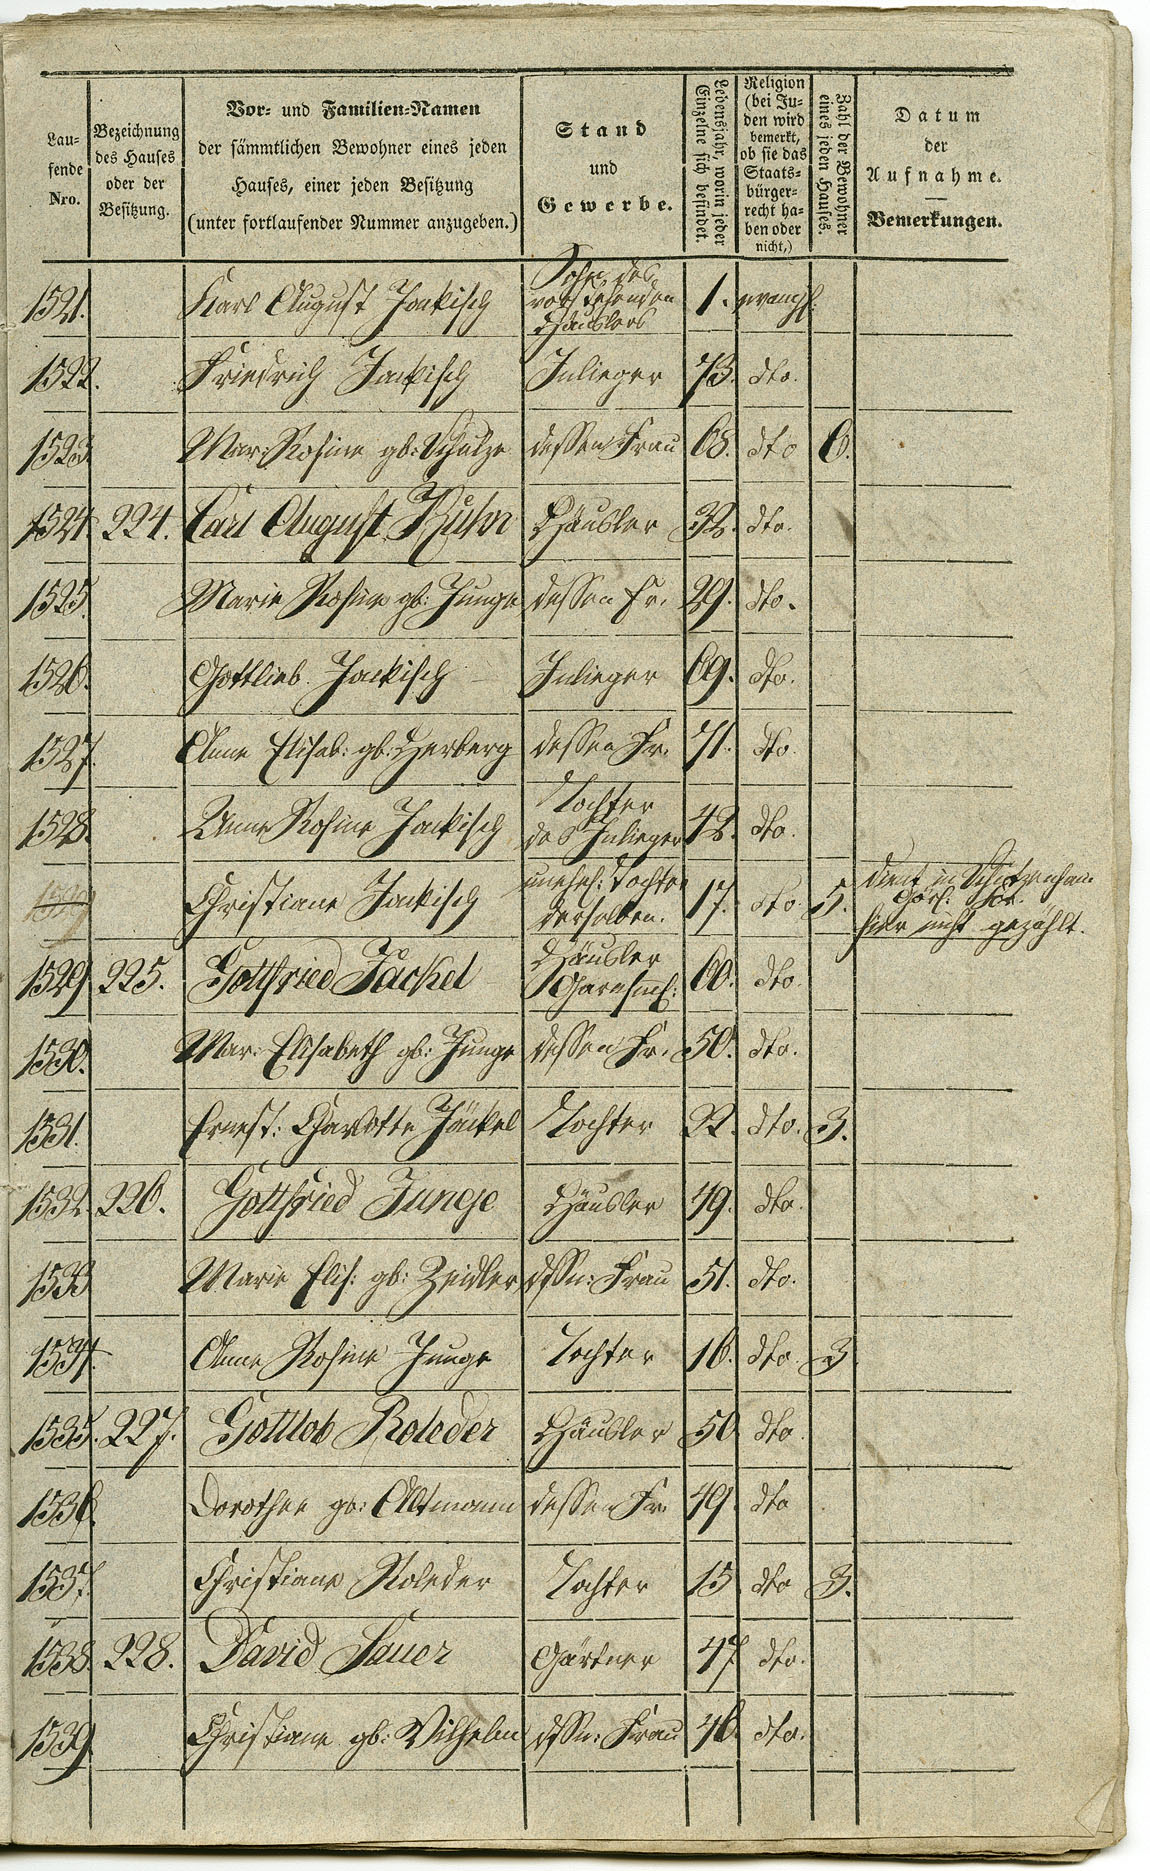 Lau-
fende
Nro.
Bezeichnung
des Hauses
oder der
Besitzung.
Vor- und Familien-Namen
der sämmtlichen Bewohner eines jeden
Hauses, einer jeden Besitzung
(unter fortlaufender Nummer anzugeben.)
Stand
und
Gewerbe.
Lebensjahr, worin jeder
Einzelne sich befindet.
Religion
(bei Ju-
den wird
bemerkt,
ob sie das
Staats-
bürger-
recht ha-
ben oder
nicht,)
Zahl der Bewohner
eines jeden Hauses.
Datum
der
Aufnahme.
Bemerkungen.
Sohn des
vorstehenden
1521. Karl August Jackisch Häuslers 1. evangl.
1522. Friedrich Jackisch Inlieger 73. dto.
1523. Mar: Rosine gb: Schulze dessen Frau 68. dto 6.
1524. 224. Carl August Kuhn Häusler 32. dto.
1525. Marie Rosine gb: Junge dessen Fr. 29. dto.
1526. Gottlieb Jackisch Inlieger 69. dto.
1527. Anne Elisab: gb: Herberg dessen Fr. 71. dto.
Tochter
1528. Anne Rosine Jackisch des Inlieger 42. dto.
unehel: Tochter
1529 Christiane Jackisch derselben. 17. dto. 5.
dient in
hier nicht gezählt.
Häusler
1529. 225. Gottfried Jäckel 60. dto.
1530. Mar: Elisabeth gb: Junge dessen Fr. 50. dto.
1531. Ernest: Charlotte Jäckel Tochter 22. dto. 3.
1532. 226. Gottfried Junge Häusler 49. dto.
1533 Marie Elis: gb: Zeidler dssn: Frau 51. dto.
1534. Anne Rosine Junge Tochter 16. dto. 3
1535. 227. Gottlob Roleder Häusler 50 dto.
1536. Dorothee gb: Altmann dessen Fr. 49. dto
1537. Christiane Roleder Tochter 15 dto 3.
1538. 228. David Sauer Gärtner 47 dto.
1539. Christiane gb: Wilhelm dssn: Frau 46. dto.